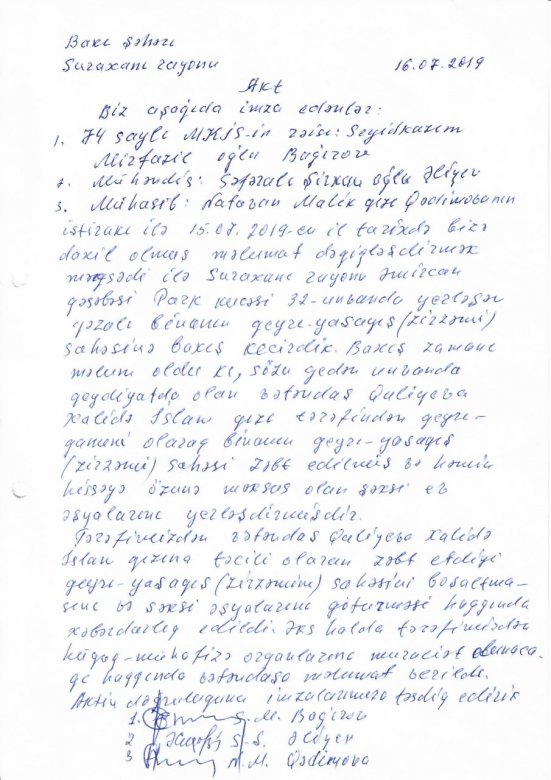 Bakı şəhəri
Suraxanı rayonu 16.07.2019
Akt
Biz aşağıda imza edənlər:
1. 74 saylı MKİS-in rəisi: Seyidkazım
Mirfazil oğlu Bağırov
2. Mühəndis: Səfəralı Şirxan oğlu Əliyev
3. Mühasib: Natəvan Malik qızı Qədimovanın
iştirakı ilə 15.07.2019-cu il tarixdə bizə
daxil olmuş məlumat dəqiqləşdirmək
məqsədi ilə Suraxanı rayonu Əmircan
qəsəbəsi Park küçəsi 32-ünvanda yerləşən
qəzalı binanın qeyri-yaşayış (zirzəmi)
sahəsinə baxış keçirdik. Baxış zamanı
məlum oldu ki, sözü gedən ünvanda
qeydiyatda olan vətəndaş Quliyeva
Xalidə İslam qızı tərəfindən qeyri-
qanuni olaraq binanın qeyri-yaşayış
(zirzəmi) sahəsi zəbt edilmiş və həmin
hissəyə özünə məxsus olan şəxsi ev
əşyalarını yerləşdirmişdir.
Tərəfimizdən vətəndaş Quliyeva Xalidə
İslam qızına təcili olaraq zəbt etdiyi
qeyri-yaşayış (zirzəminin) sahəsini boşaltma-
sını və şəxsi əşyalarını götürməsi haqqında
xəbərdarlıq edildi. Əks halda tərəfimizdən
hüquq-mühafizə orqanlarına müraciət olunaca-
qı haqqında vətəndaşa məlumat verildi.
Aktin doğruluğunu imzalarımızla təsdiq edirik
1. S.M. Bağırov
2 S.Ş. Əliyev
3 N.M. Qədimova